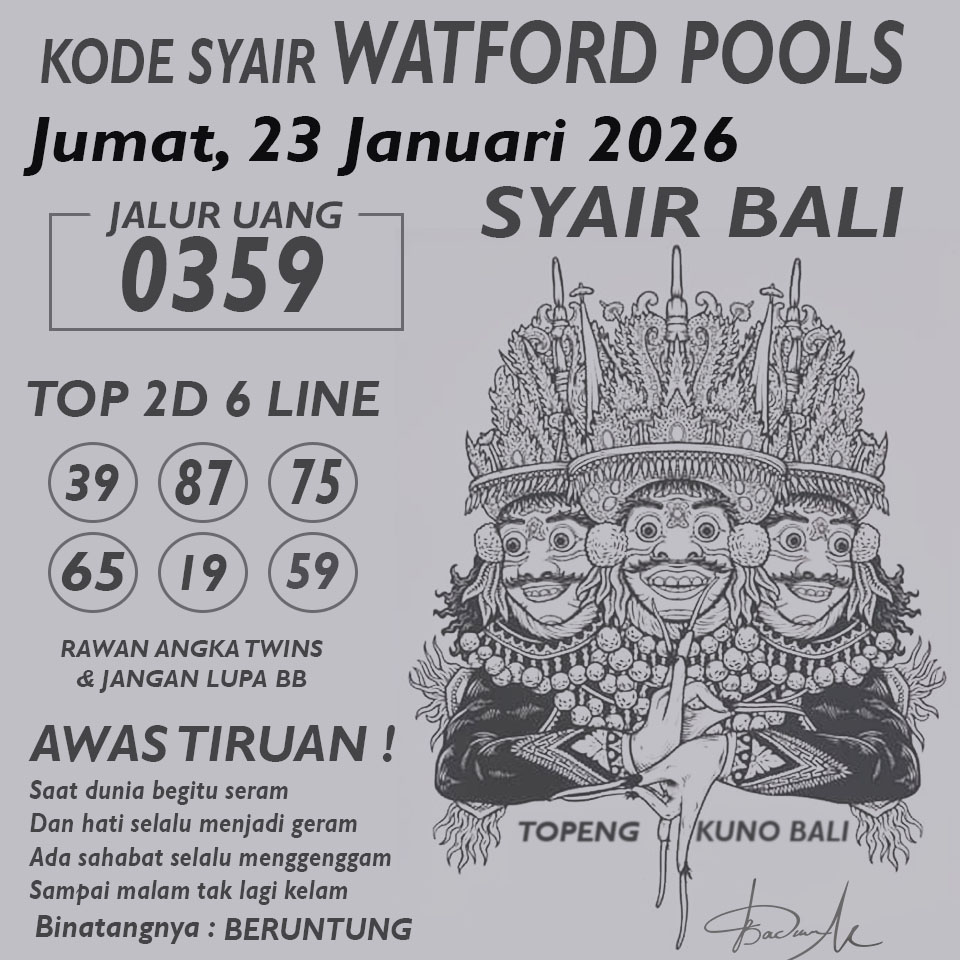 KODE SYAIR WATFORD POOLS
Jumat, 23 Januari 2026
SYAIR BALI
JALUR UANG
0359
TOP 2D 6 LINE
39 87 75
65 19 59
RAWAN ANGKA TWINS
& JANGAN LUPA BB
AWAS TIRUAN !
Saat dunia begitu seram
Dan hati selalu menjadi geram
Ada sahabat selalu menggenggam
Sampai malam tak lagi kelam
Binatangnya : BERUNTUNG
TOPENG KUNO BALI